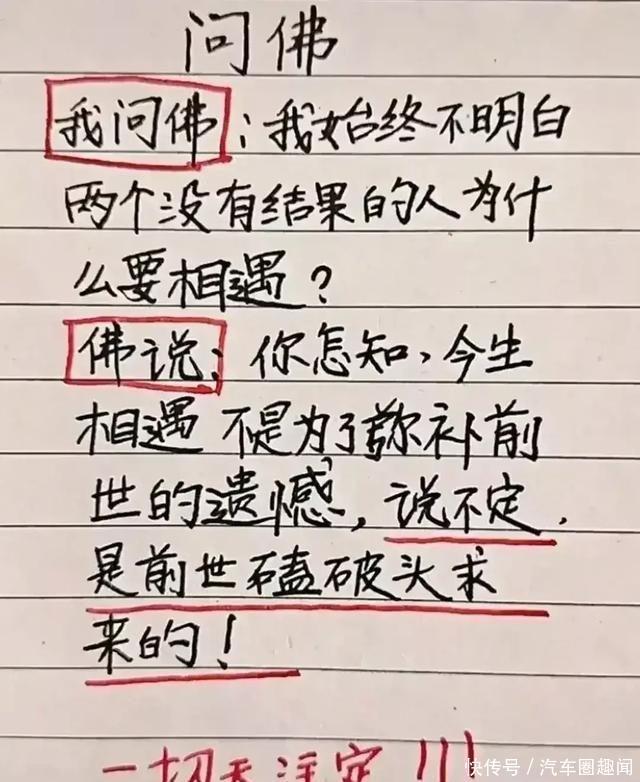 问佛
我问佛：我始终不明白
两个没有结果的人为什
么要相遇？
佛说：你怎知，今生
相遇不是为了弥补前
世的遗憾，说不定，
是前世磕破头求
来的！
一切天注定!!!
快传号／汽车圈趣闻